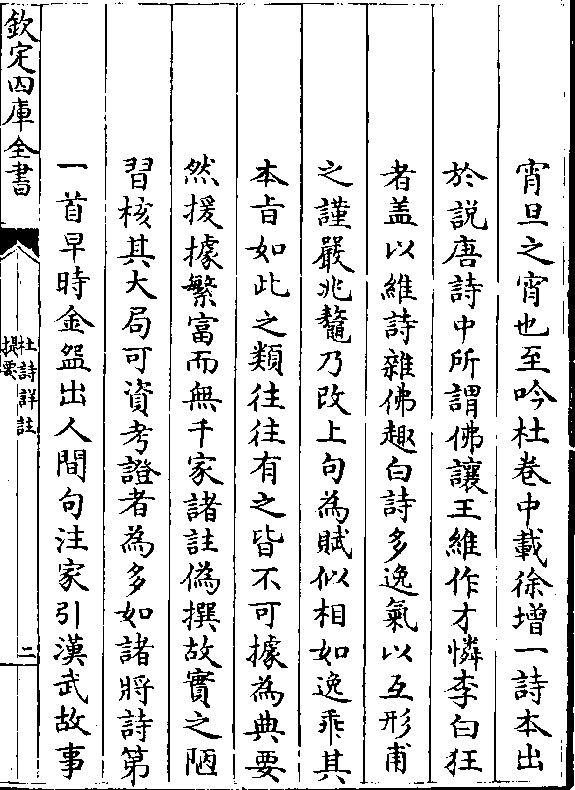 宵旦之宵也至吟杜卷中載徐增一詩本出
於説唐詩中所謂佛讓王維作才憐李白狂
者盖以維詩雜佛趣白詩多逸氣以互形甫
之謹嚴兆鼇乃改上句為賦似相如逸乖其
本㫖如此之類往往有之皆不可據為典要
然援據繁富而無千家諸註偽撰故實之陋
習核其大局可資考證者為多如諸將詩第
一首早時金盌出人間句注家引漢武故事
欽定四庫全書
杜詩詳註
提要
二